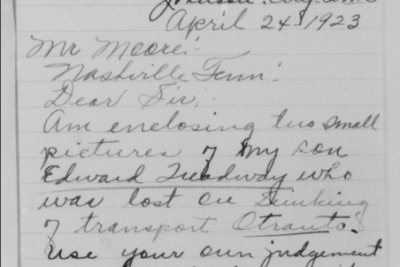 April 24 1923
Mr Moore:
Nashville Tenn.
Dear Sir:
Am enclosing two small
pictures of my son
Edward Treadway who
was lost on Sinking
of transport Otranto.
Use your own judgement